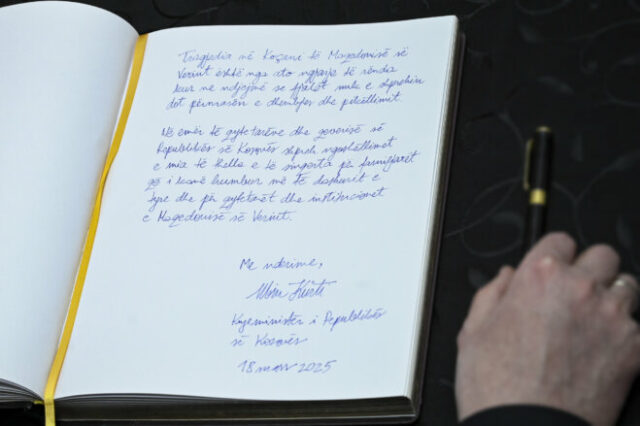 Tragjedia në Koçani të Maqedonisë së
Veriut është nga ato ngjarje të rënda
kur ne ndjejmë se fjalët nuk e shprehin
dot përmasën e dhembjes dhe pikëllimit.
Në emër të qytetarëve dhe qeverisë së
Republikës së Kosovës shpreh ngushëllimet
e mia të thella e të sinqerta për familjarët
që i kanë humbur më të dashurit e
tyre dhe për qytetarët dhe institucionet
e Maqedonisë së Veriut.
Me nderime,
Albin Kurti
Kryeministër i Republikës
së Kosovës
18 mars 2025